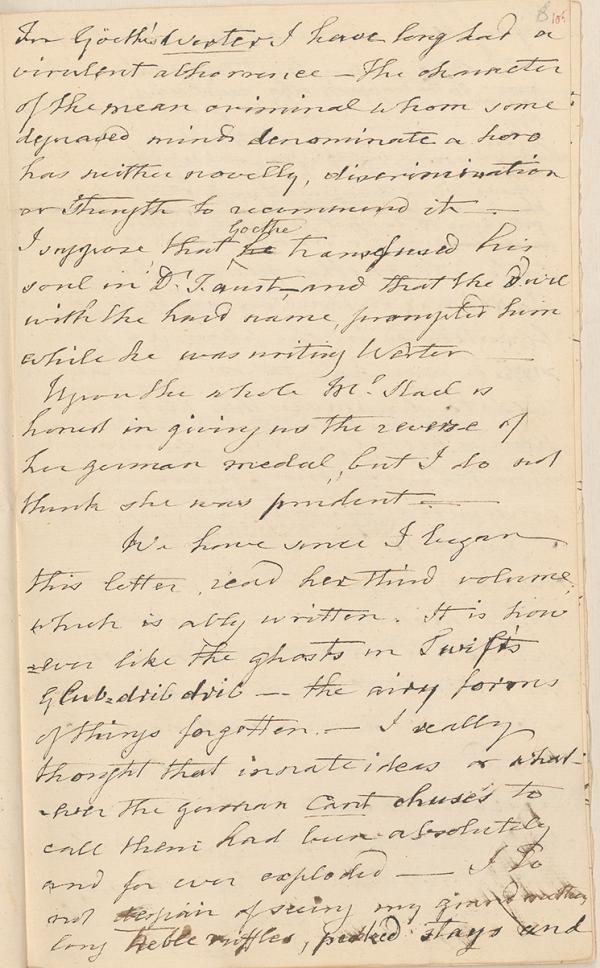 8 105
For Göethe's Werter I have long had a
virulent abhorrence – The character
of the mean criminal whom some
depraved minds denominate a hero
has neither novelty, discrimination
or strength to recommend it –
Goethe
I suppose, that he transfused his
soul in Dr. Faust – and that the Divil
with the hard name, prompted him
while he was writing Werter –
Upon the whole Me. Stael is
honest in giving us the reverse of
her german medal, but I do not
think she was prudent –
We have since I began
this letter, read her third volume,
which is ably written. It is how
=ever like the ghosts in Swift's
Glub=drib drib – the airy forms
of things forgotten. – I really
thought that innate ideas or what-
-ever the german Cant chuses to
call them had been absolutely
and for ever exploded – I do
not despair of seeing my grand mothers
long treble ruffles, peaked stays and